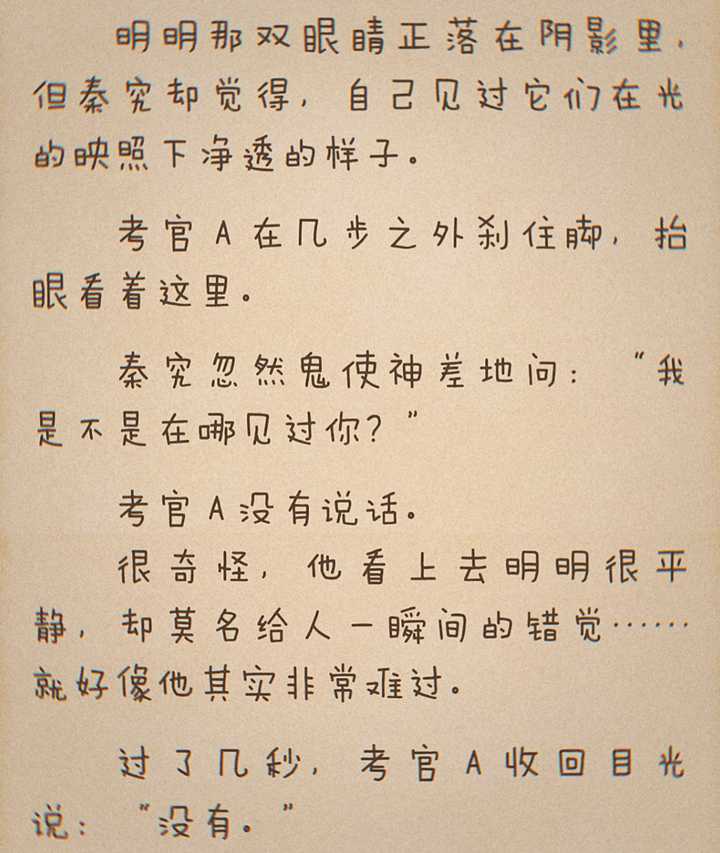 明明那双眼睛正落在阴影里，
但秦究却觉得，自己见过它们在光
的映照下净透的样子。
考官A在几步之外刹住脚，抬
眼看着这里。
秦究忽然鬼使神差地问：“我
是不是在哪见过你？”
考官A没有说话。
很奇怪，他看上去明明很平
静，却莫名给人一瞬间的错觉……
就好像他其实非常难过。
过了几秒，考官A收回目光
说：“没有。”